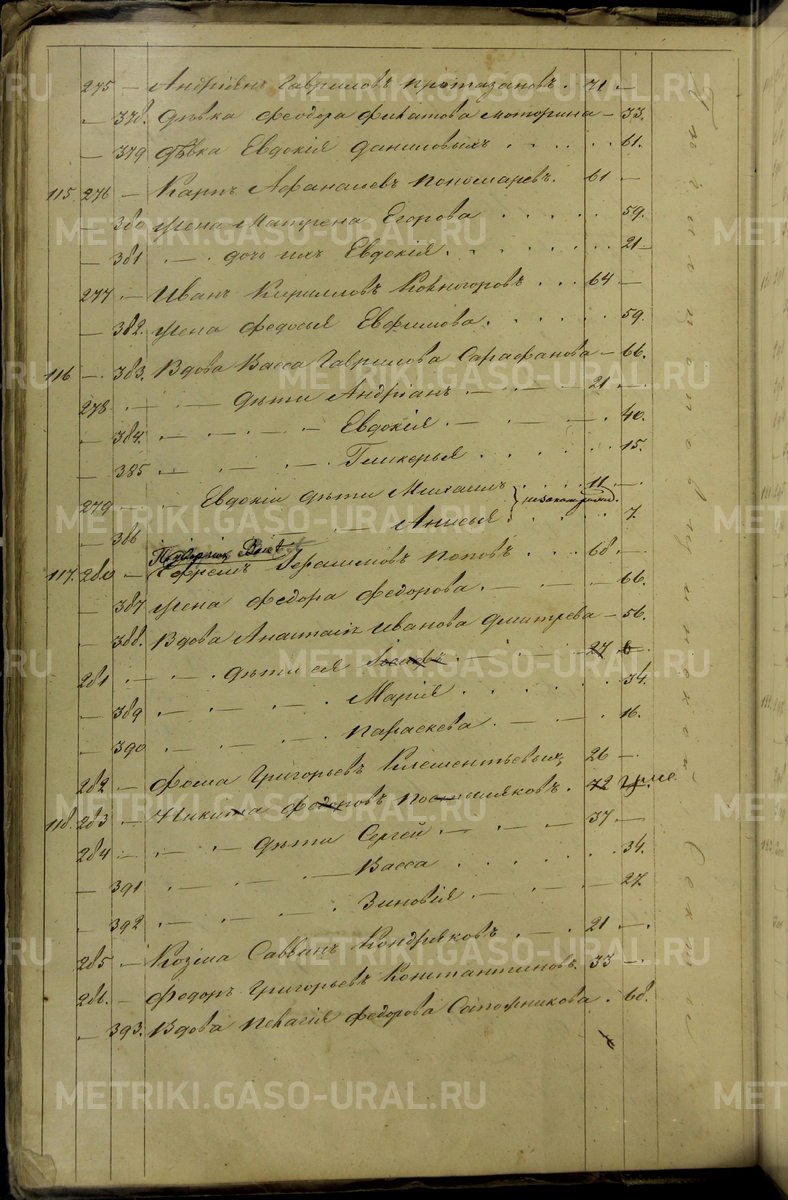 275 — Андріянъ Гавриловъ Протазановъ . 71 —
— 378. Дѣвка Феодора Филатова Моторина — 33.
— 379 Дѣвка Евдокія Даниловыхъ . . . . . 61.
115 276 — Карпъ Афанасьевъ Пономаревъ . 61 —
— 380 Жена Матрена Егорова . . . . . 59.
— 381 — дочь ихъ Евдокія . . . . . 21 —
277 — Иванъ Кириловъ Коногоровъ . . . 64 —
— 382. Жена Федосья Евфимова . . . . . 59.
116 — 383. Вдова Васса Гаврилова Сарафанова — 66.
278 — — дѣти Андріанъ — — — 21 —
— 384. — — — Евдокія — — — 40.
— 385 — — — Гликерья . . . . . 15.
279 — — Евдокіи дѣти Михаилъ . . . . 11 —
незаконорожд.
— 386 — — Анисья . . . . . 7.
117. 280 — Ефремъ Герасимовъ Поповъ . . . 68 —
— 387 Жена Федора Федорова . . . . . 66.
— 388. Вдова Анастасія Иванова Дмитрева — 56.
281 — — дѣти ея — — — 27
— 389 — — — Марія . . . . . 34.
— 390 — — — Параскева — — — 16.
282 — Фома Григорьевъ Клементьевыхъ 26 —
118. 283 — Никита Федоровъ . 72 Уме
284 — — дѣти Сергей — — — 37 —
— 391 — — — Васса . . . . . 34.
— 392 — — — Зиновія — — — 27.
285 — Козма Саввинъ Кондряковъ — — 21 —
286. — Федоръ Григорьевъ Константиновъ. 33 —
— 393. Вдова Пелагія Федорова Сапожникова . 68.
METRIKI.GASO-URAL.RU